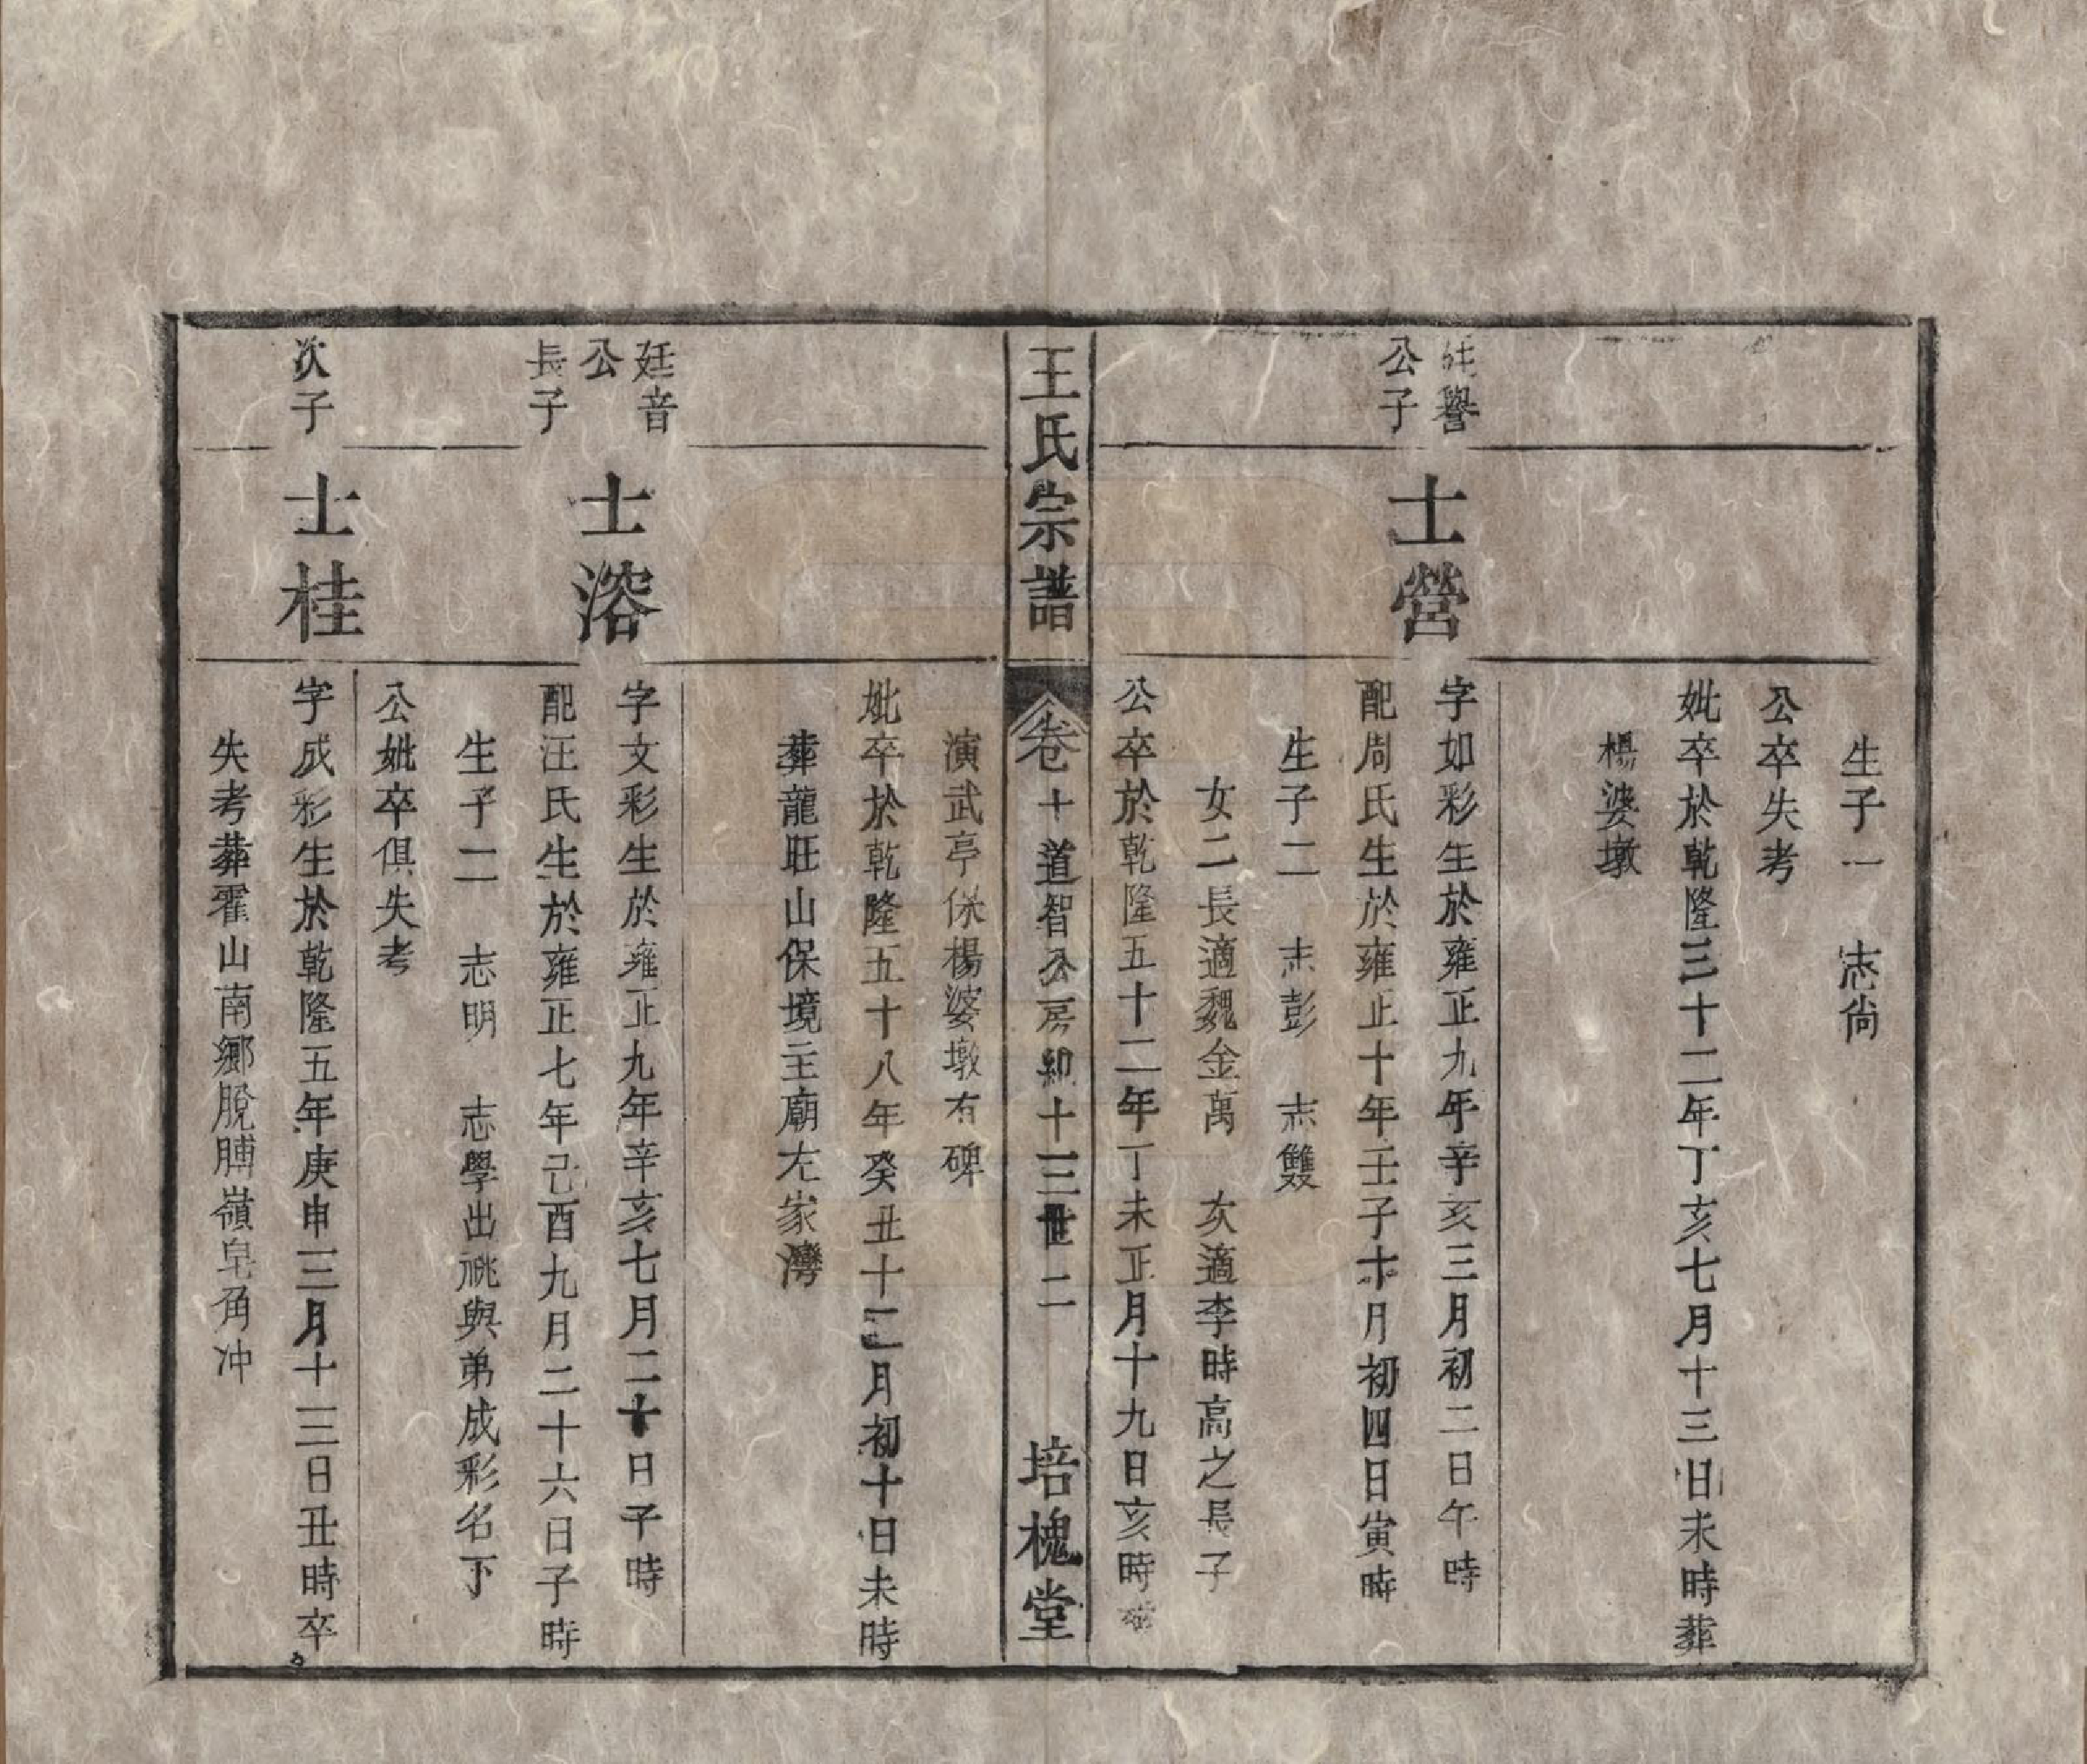 生子一 志尙
公卒失考
妣卒於乾隆三十二年丁亥七月十三日未時葬
楊婆墩
譽
公子
士營
字如彩生於雍正九年辛亥三月初二日午時
配周氏生於雍正十年壬子十月初四日寅時
生子二 志彭 志雙
女二長適魏金萬 次適李時高之長子
公卒於乾隆五十二年丁未正月十九日亥時
王氏宗譜
卷十道智公房 十三世 二
培槐堂
演武亭保楊婆墩有碑
妣卒於乾隆五十八年癸丑十二月初十日未時
葬龍旺山保境主廟左家灣
廷音
公
長子
士溶
字文彩生於雍正九年辛亥七月二十日子時
配汪氏生於雍正七年己酉九月二十六日子時
生子二 志明 志學出祧與弟成彩名下
公妣卒俱失考
次子
士桂
字成彩生於乾隆五年庚申三月十三日丑時卒
失考葬霍山南鄉脫膊嶺皂角冲